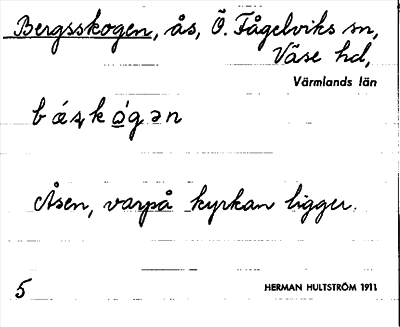 Bergsskogen, ås, Ö. Fågelviks sn,
Väse hd,
Värmlands län
bǽʂkó̲gən
Åsen, varpå kyrkan ligger.
5
HERMAN HULTSTRÖM 1911